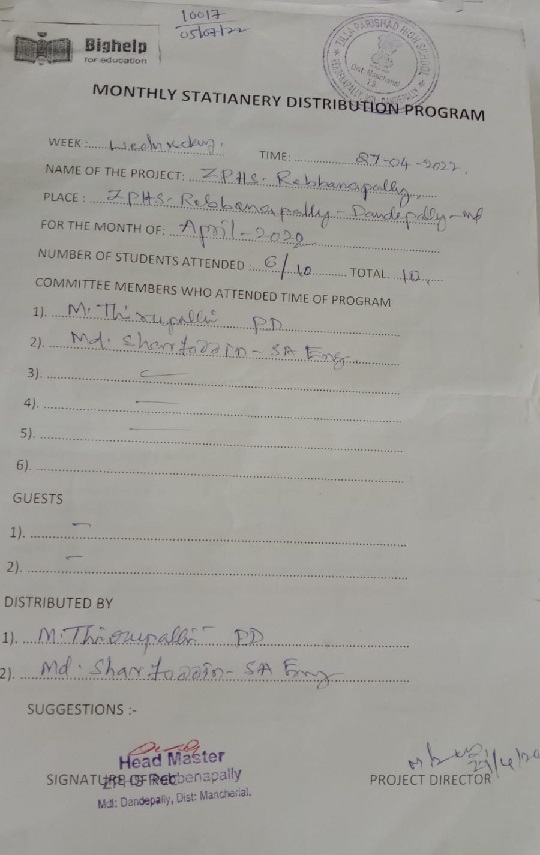 10017
05/07/22
Bighelp
for education
ZILLA PARISHAD HIGH SCHOOL
Dist: Mancherial
T.S.
MONTHLY STATIANERY DISTRIBUTION PROGRAM
WEEK: Wednesday.
TIME: 27-04-2022.
NAME OF THE PROJECT: ZPHS. Rebbanapally
PLACE: ZPHS. Rebbanapally - Dandepally -
FOR THE MONTH OF: April-2022
NUMBER OF STUDENTS ATTENDED 6/10 TOTAL 10
COMMITTEE MEMBERS WHO ATTENDED TIME OF PROGRAM
1). M. Thirupalli PD
2). Md. Sharfoddin - SA Eng
3). -
4). -
5). -
6).
GUESTS
1). -
2). -
DISTRIBUTED BY
1). M. Thirupalli PD
2). Md. Sharfoddin - SA Eng
SUGGESTIONS :-
Head Master
SIGNATURE OF
ZPHS Rebbenapally
Mdl: Dandepally, Dist: Mancherial.
PROJECT DIRECTOR